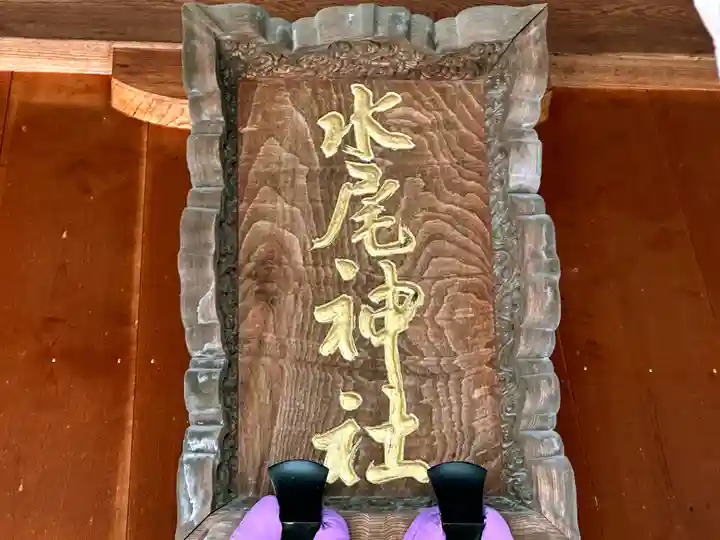 水尾神社